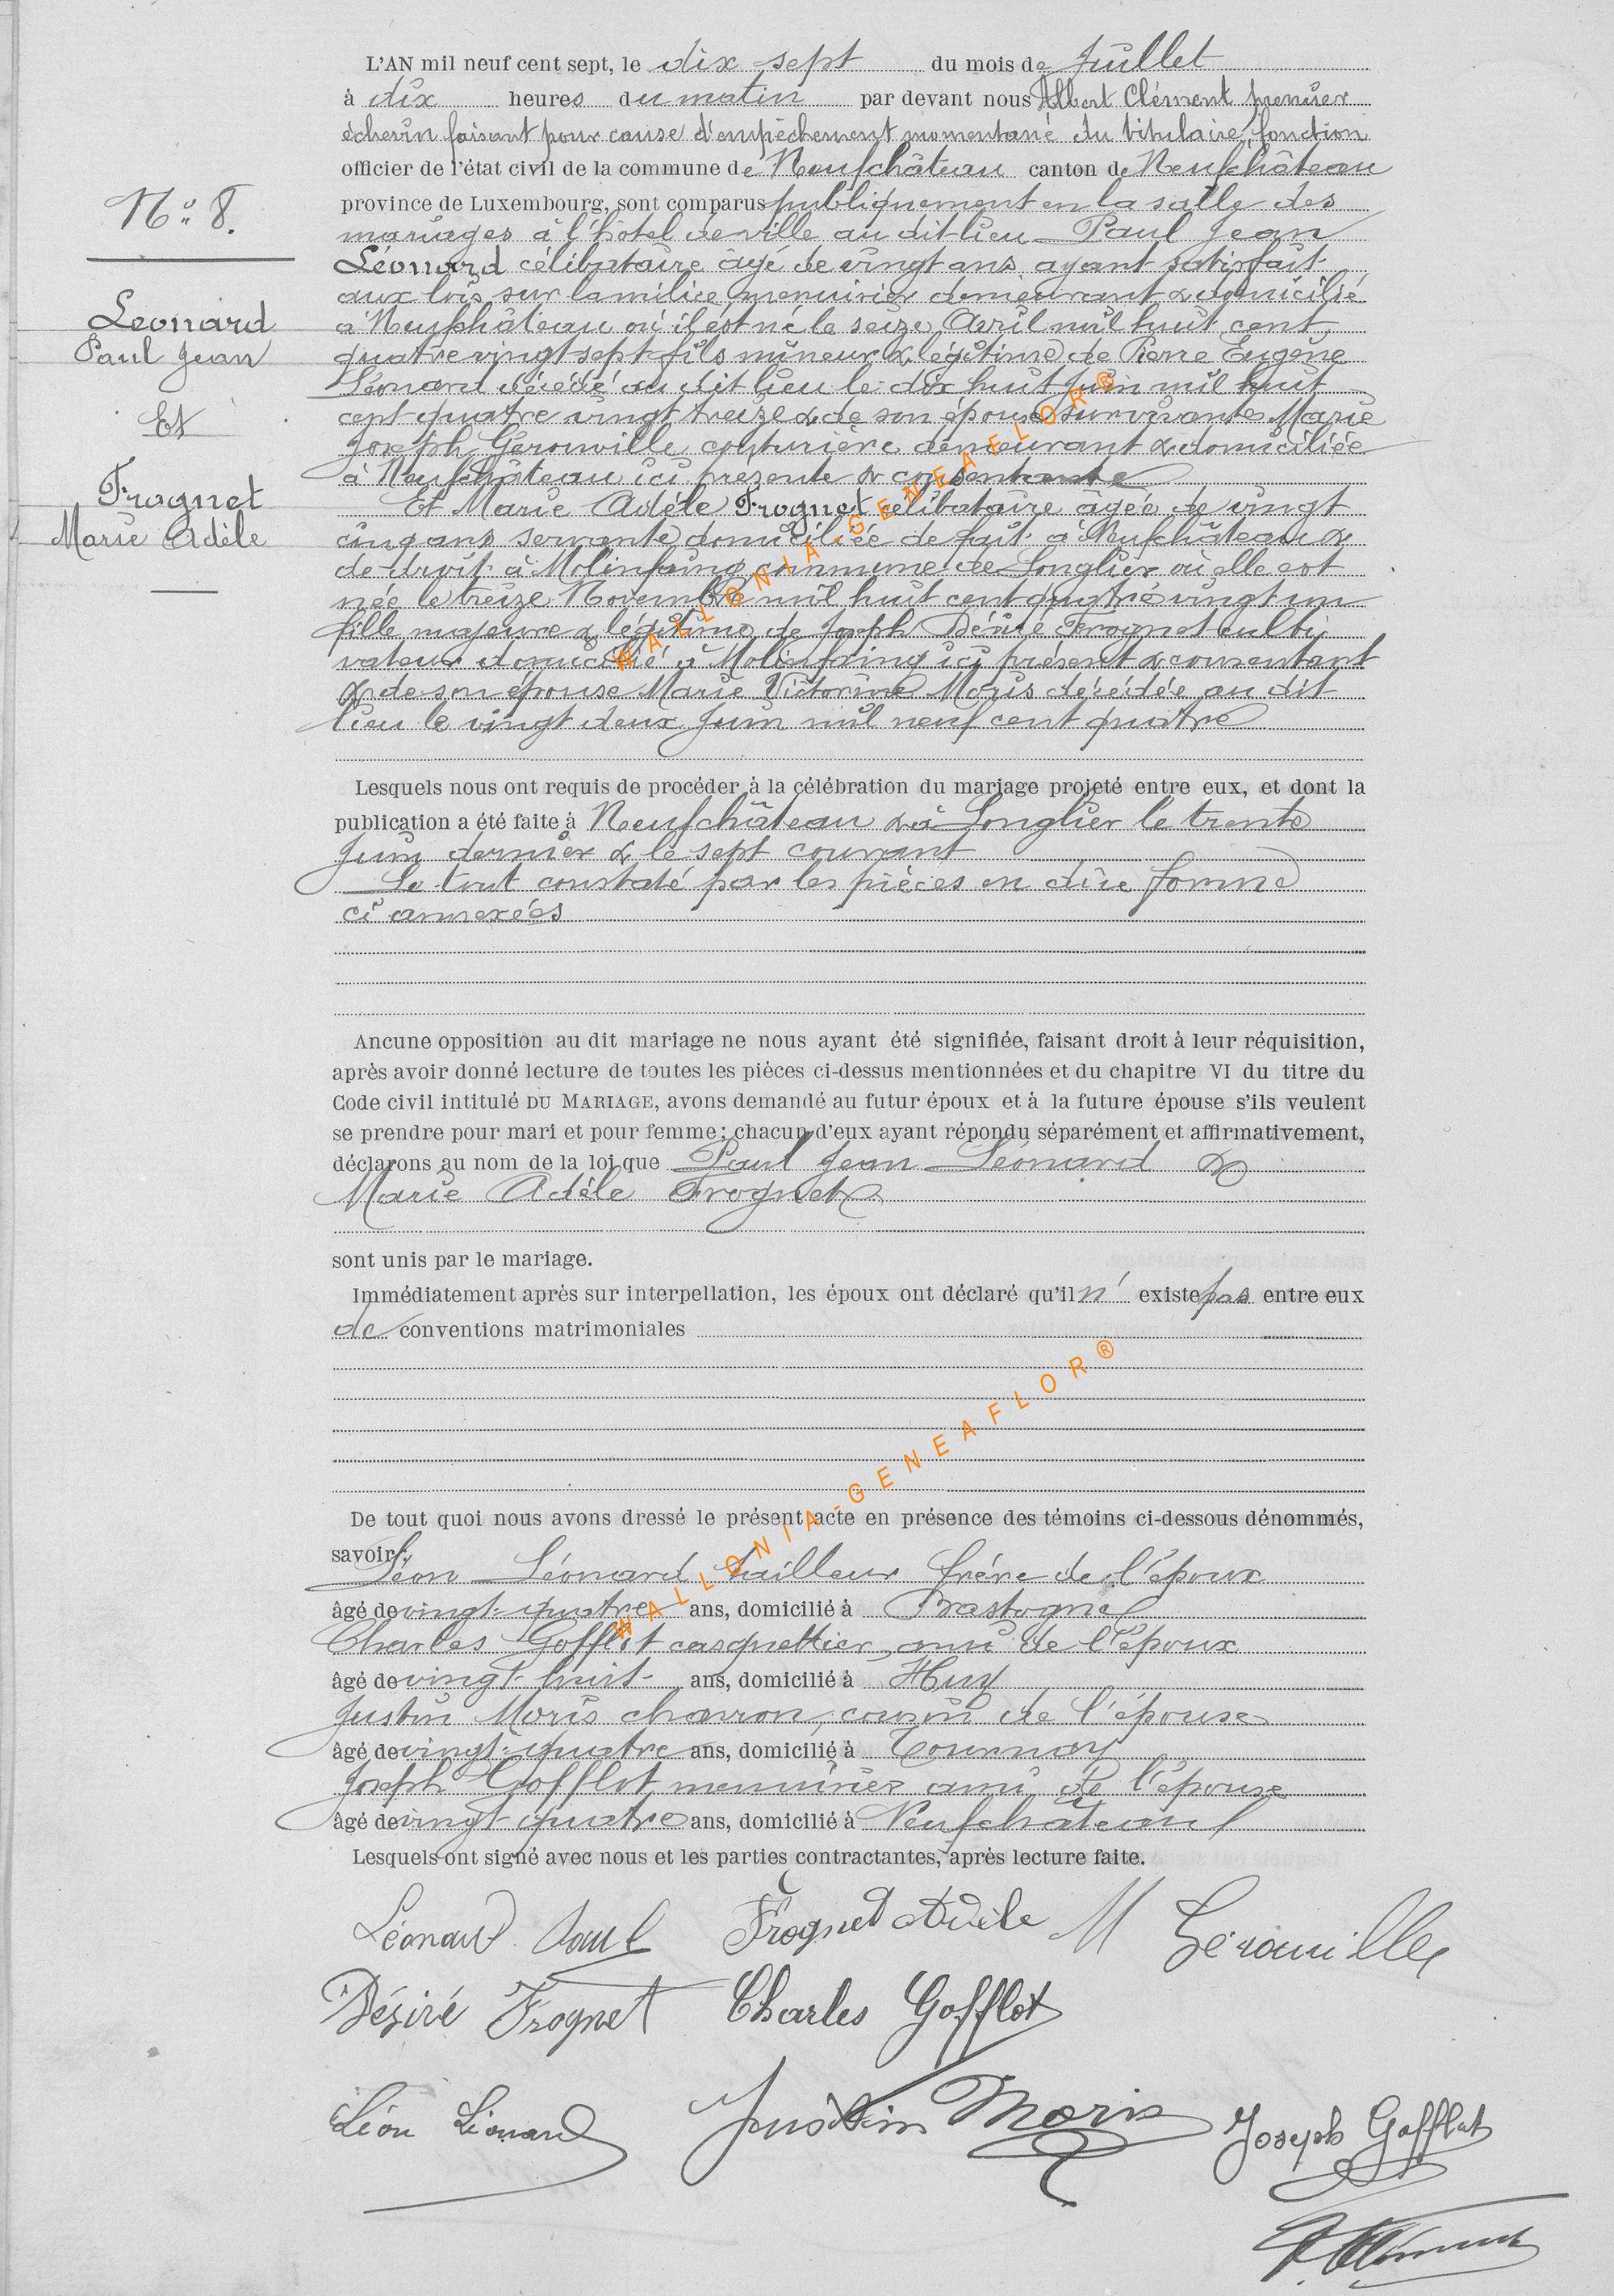 L'AN mil neuf cent sept, le dix sept du mois de Juillet
à dix heures du matin par devant nous Albert Clément premier
échevin faisant pour cause d'empêchement momentané du titulaire, fonction
officier de l'état civil de la commune de Neufchâteau canton de Neufchâteau
province de Luxembourg, sont comparus publiquement en la salle des
mariages à l'hôtel de ville au dit lieu Paul Jean
Léonard célibataire âgé de vingt ans, ayant satisfait
aux lois sur la milice, menuisier demeurant & domicilié
à Neufchâteau où il est né le seize Avril mil huit cent
quatre vingt sept fils mineur & légitime de Pierre Eugène
Léonard décédé au dit lieu le dix huit Juin mil huit
cent quatre vingt treize & de son épouse survivante Marie
Joseph Gérouville couturière demeurant & domiciliée
à Neufchâteau ici présente & consentante
Et Marie Adèle Frognet célibataire âgée de vingt
cinq ans servante domiciliée de fait à Neufchâteau &
de droit à Molinfaing commune de Longlier où elle est
née le treize Novembre mil huit cent quatre vingt un
fille majeure & légitime de Joseph Désiré Frognet culti
vateur domicilié à Molinfaing ici présent & consentant
& de son épouse Marie Victorine Moris décédée au dit
lieu le vingt deux Juin mil neuf cent quatre
N° 8.
Leonard
Paul Jean
Et
Frognet
Marie Adèle
Lesquels nous ont requis de procéder à la célébration du mariage projeté entre eux, et dont la
publication a été faite à Neufchâteau & à Longlier le trente
Juin dernier & le sept courant
Le tout constaté par les pièces en dûe forme
ci annexées
Ancune opposition au dit mariage ne nous ayant été signifiée, faisant droit à leur réquisition,
après avoir donné lecture de toutes les pièces ci-dessus mentionnées et du chapitre VI du titre du
Code civil intitulé DU MARIAGE, avons demandé au futur époux et à la future épouse s'ils veulent
se prendre pour mari et pour femme; chacun d'eux ayant répondu séparément et affirmativement,
déclarons au nom de la loi que Paul Jean Léonard &
Marie Adèle Frognet
sont unis par le mariage.
Immédiatement après sur interpellation, les époux ont déclaré qu'il n' existe pas entre eux
de conventions matrimoniales
De tout quoi nous avons dressé le présent acte en présence des témoins ci-dessous dénommés,
savoir:
Léon Léonard tailleur frère de l'époux
âgé de vingt-quatre ans, domicilié à Bastogne
Charles Gofflot casquettier, ami de l'époux
âgé de vingt-huit ans, domicilié à Huy
Justin Moris charron, cousin de l'épouse
âgé de vingt-quatre ans, domicilié à Tournay
Joseph Gofflot, menuisier ami de l'épouse
âgé de vingt-quatre ans, domicilié à Neufchâteau
Lesquels ont signé avec nous et les parties contractantes, après lecture faite.
Léonard Paul Frognet Adèle M Gérouville
Désiré Frognet Charles Gofflot
Léon Léonard Justin Moris Joseph Gofflot
A Clément
WALLONIA-GENEAFLOR®
WALLONIA-GENEAFLOR®